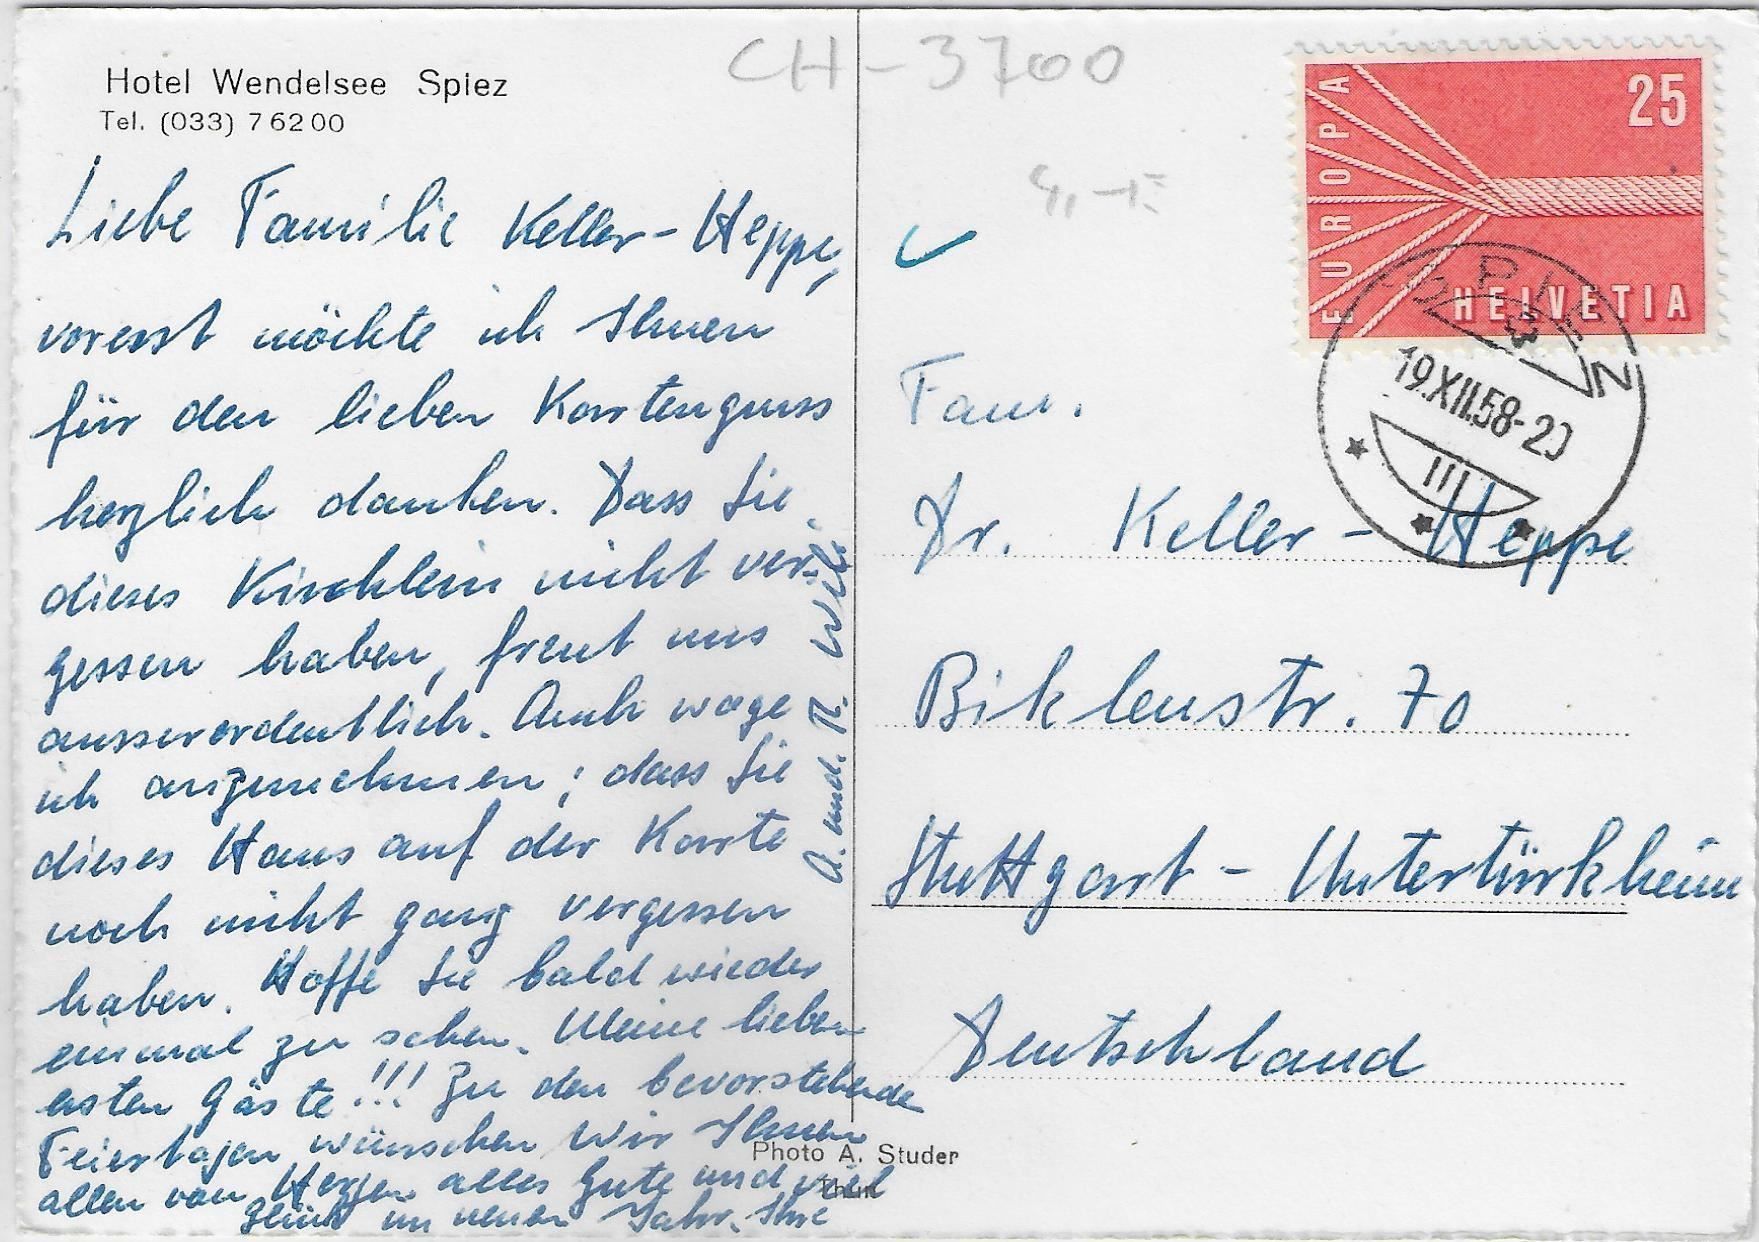 Hotel Wendelsee Spiez
Tel. (033) 7 62 00
Liebe Familie Keller-Heppe,
vorerst möchte ich Ihnen
für den lieben Kartengruss
herzlich danken. Dass Sie
dieses Kirchlein nicht ver-
gessen haben, freut uns
ausserordentlich. Auch wage
ich anzunehmen, dass Sie
dieses Haus auf der Karte
noch nicht ganz vergessen
haben. Hoffe Sie bald wieder
einmal zu sehen. Meine lieben
ersten Gäste!!! Zu den bevorstehende
Feiertagen wünschen wir Ihnen
allen von Herzen alles Gute und viel
Glück im neuen Jahr. Ihre
A. und R.
CH-3700
EUROPA
25
HELVETIA
SPIEZ
19.XII.58-20
Fam.
Dr. Keller-Heppe
Biklenstr. 70
Stuttgart-Untertürkheim
Deutschland
Photo A. Studer
Thun